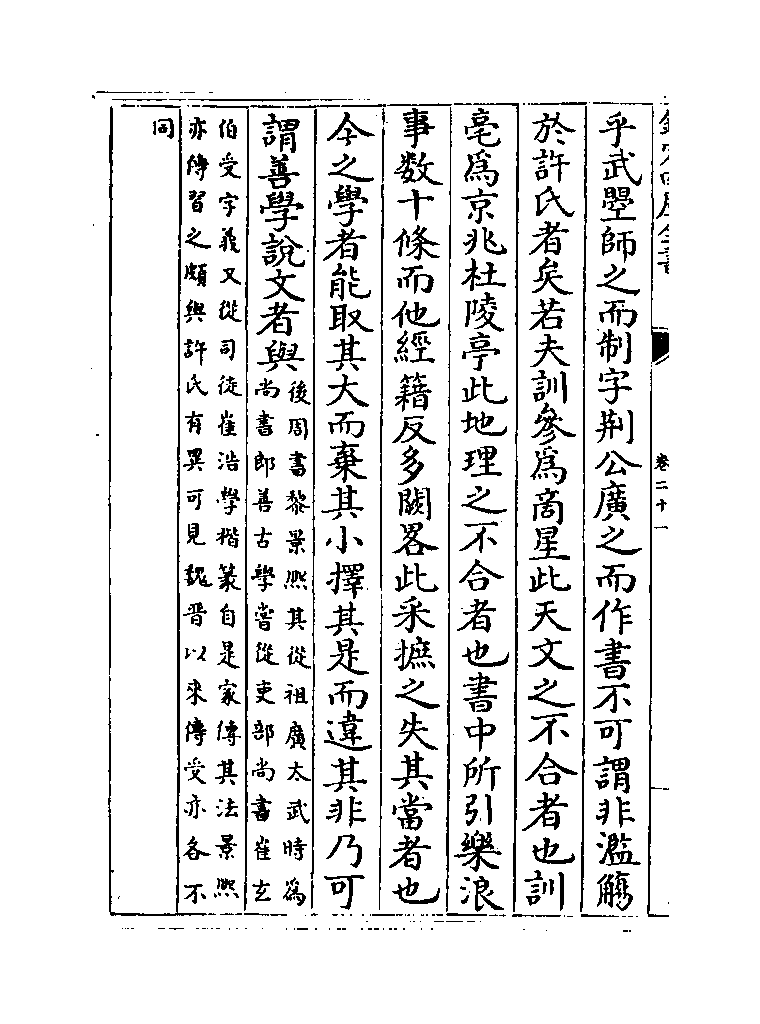 欽定四庫全書
卷二十一
乎武曌師之而制字荆公廣之而作書不可謂非濫觴
於許氏者矣若夫訓參為商星此天文之不合者也訓
亳爲京兆杜陵亭此地理之不合者也書中所引樂浪
事数十條而他經籍反多闕畧此采摭之失其當者也
今之學者能取其大而棄其小擇其是而違其非乃可
謂善學說文者與
後周書黎景熙其從祖廣太武時為
尚書郎善古學嘗從吏部尚書崔玄
伯受字義又從司徒崔浩學楷篆自是家傳其法景熙
亦傳習之頗與許氏有異可見魏晋以來傳受亦各不
同